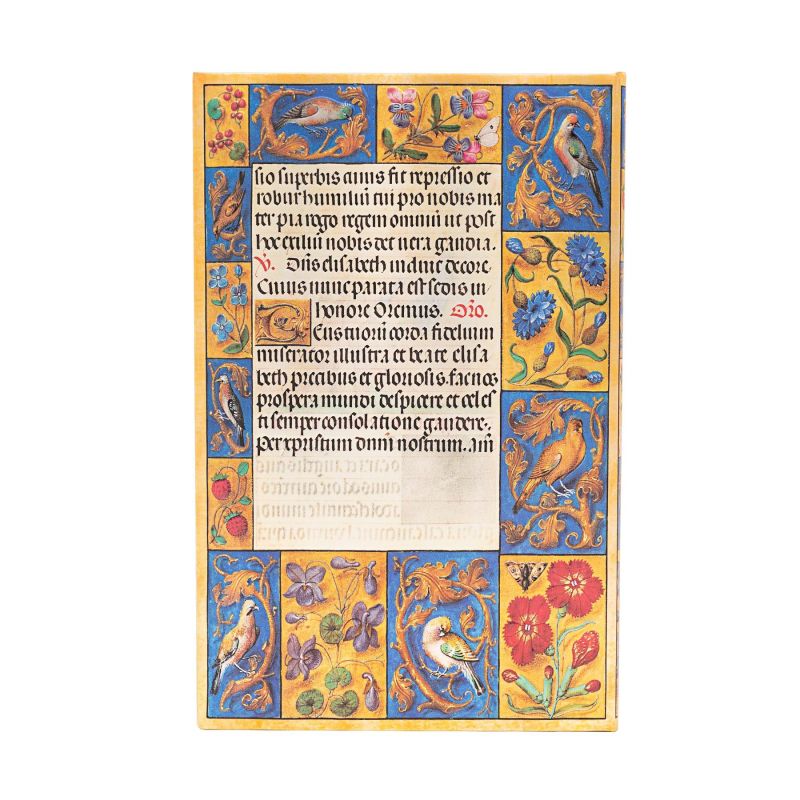 sio superbis cuius fit repressio et
robur humiliū tui pro nobis ma
ter pia rogo regem omniū ut post
hoc exiliū nobis det vera gaudia.
V. Diīs elisabeth induit decore
Cuius nunc parata est sedis in
honore Oremus. Orō.
Eus tuorū corda fidelium
miserator illustra et beate elisa
beth precibus et gloriosis. fac nos
prospera mundi despicere et celes
ti semper consolatione gaudere.
Per xpristum dnm̄ nostrum. am̄